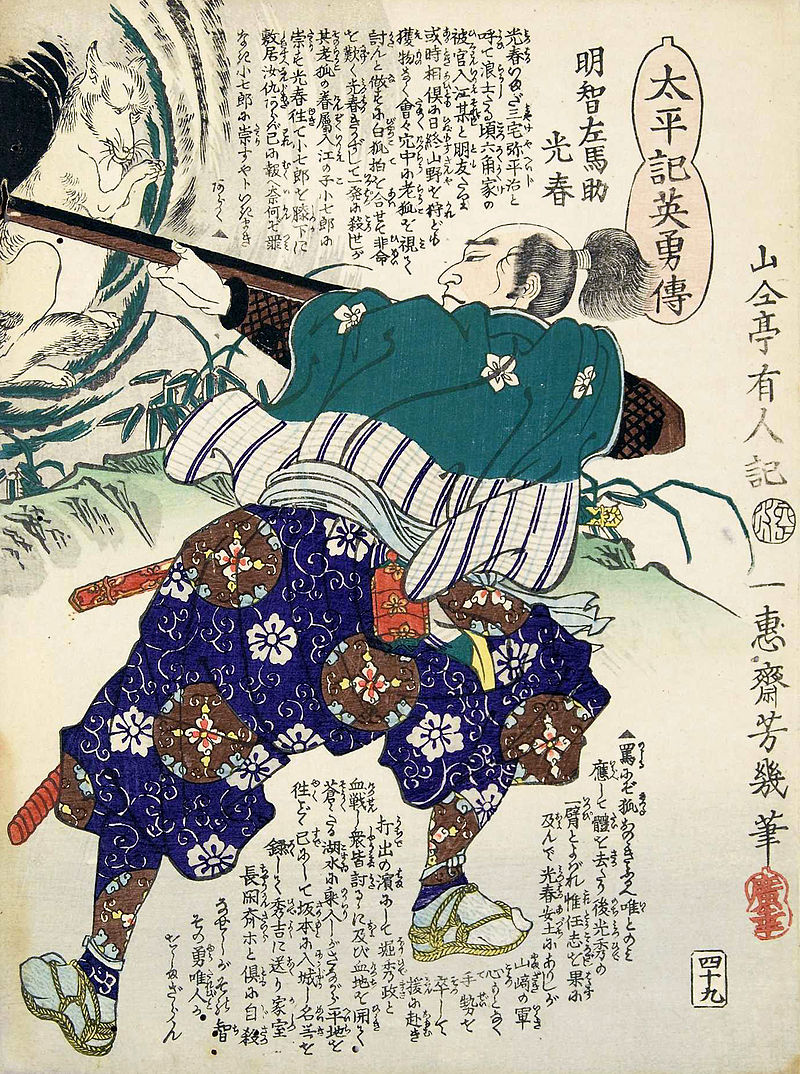 太平記英勇傳
明智左馬助
光春
光春いまだ三宅弥平治と
呼で浪士たる頃六角家の
被官入江某と朋友たり
或時相倶に日終山野を狩ども
獲物なく會々穴中に老狐を視て
討んと做すに白狐拍 合せて非命
を歎く光春きかずして一發に殺せしが
其老狐の眷属入江の子小七郎に
祟を光春往て小七郎を膝下に
敷居汝仇たる己に報ハ奈何ぞ罪
なき小七郎に祟すやトいきまき
▲
▲罵れバ狐おのゝき 唯との
應して體を去たり後光秀の
一臂とよばれ惟任志を果に
及んで光春安土にありしが
山﨑の軍
心もとなく
手勢を
卒して
援に赴き
打出の濱にして堀秀政と
血戦し衆皆討るに及び血地を開て
蒼々たる湖水に乗入しがさながら平地を
往く 已にして坂本に入城し名 を
録して秀吉に送り家室
長閑斉ホと倶に自殺
なせしがその智
その勇唯人に
あらざらん
山仝亭有人記
一惠齋芳幾筆
四十九